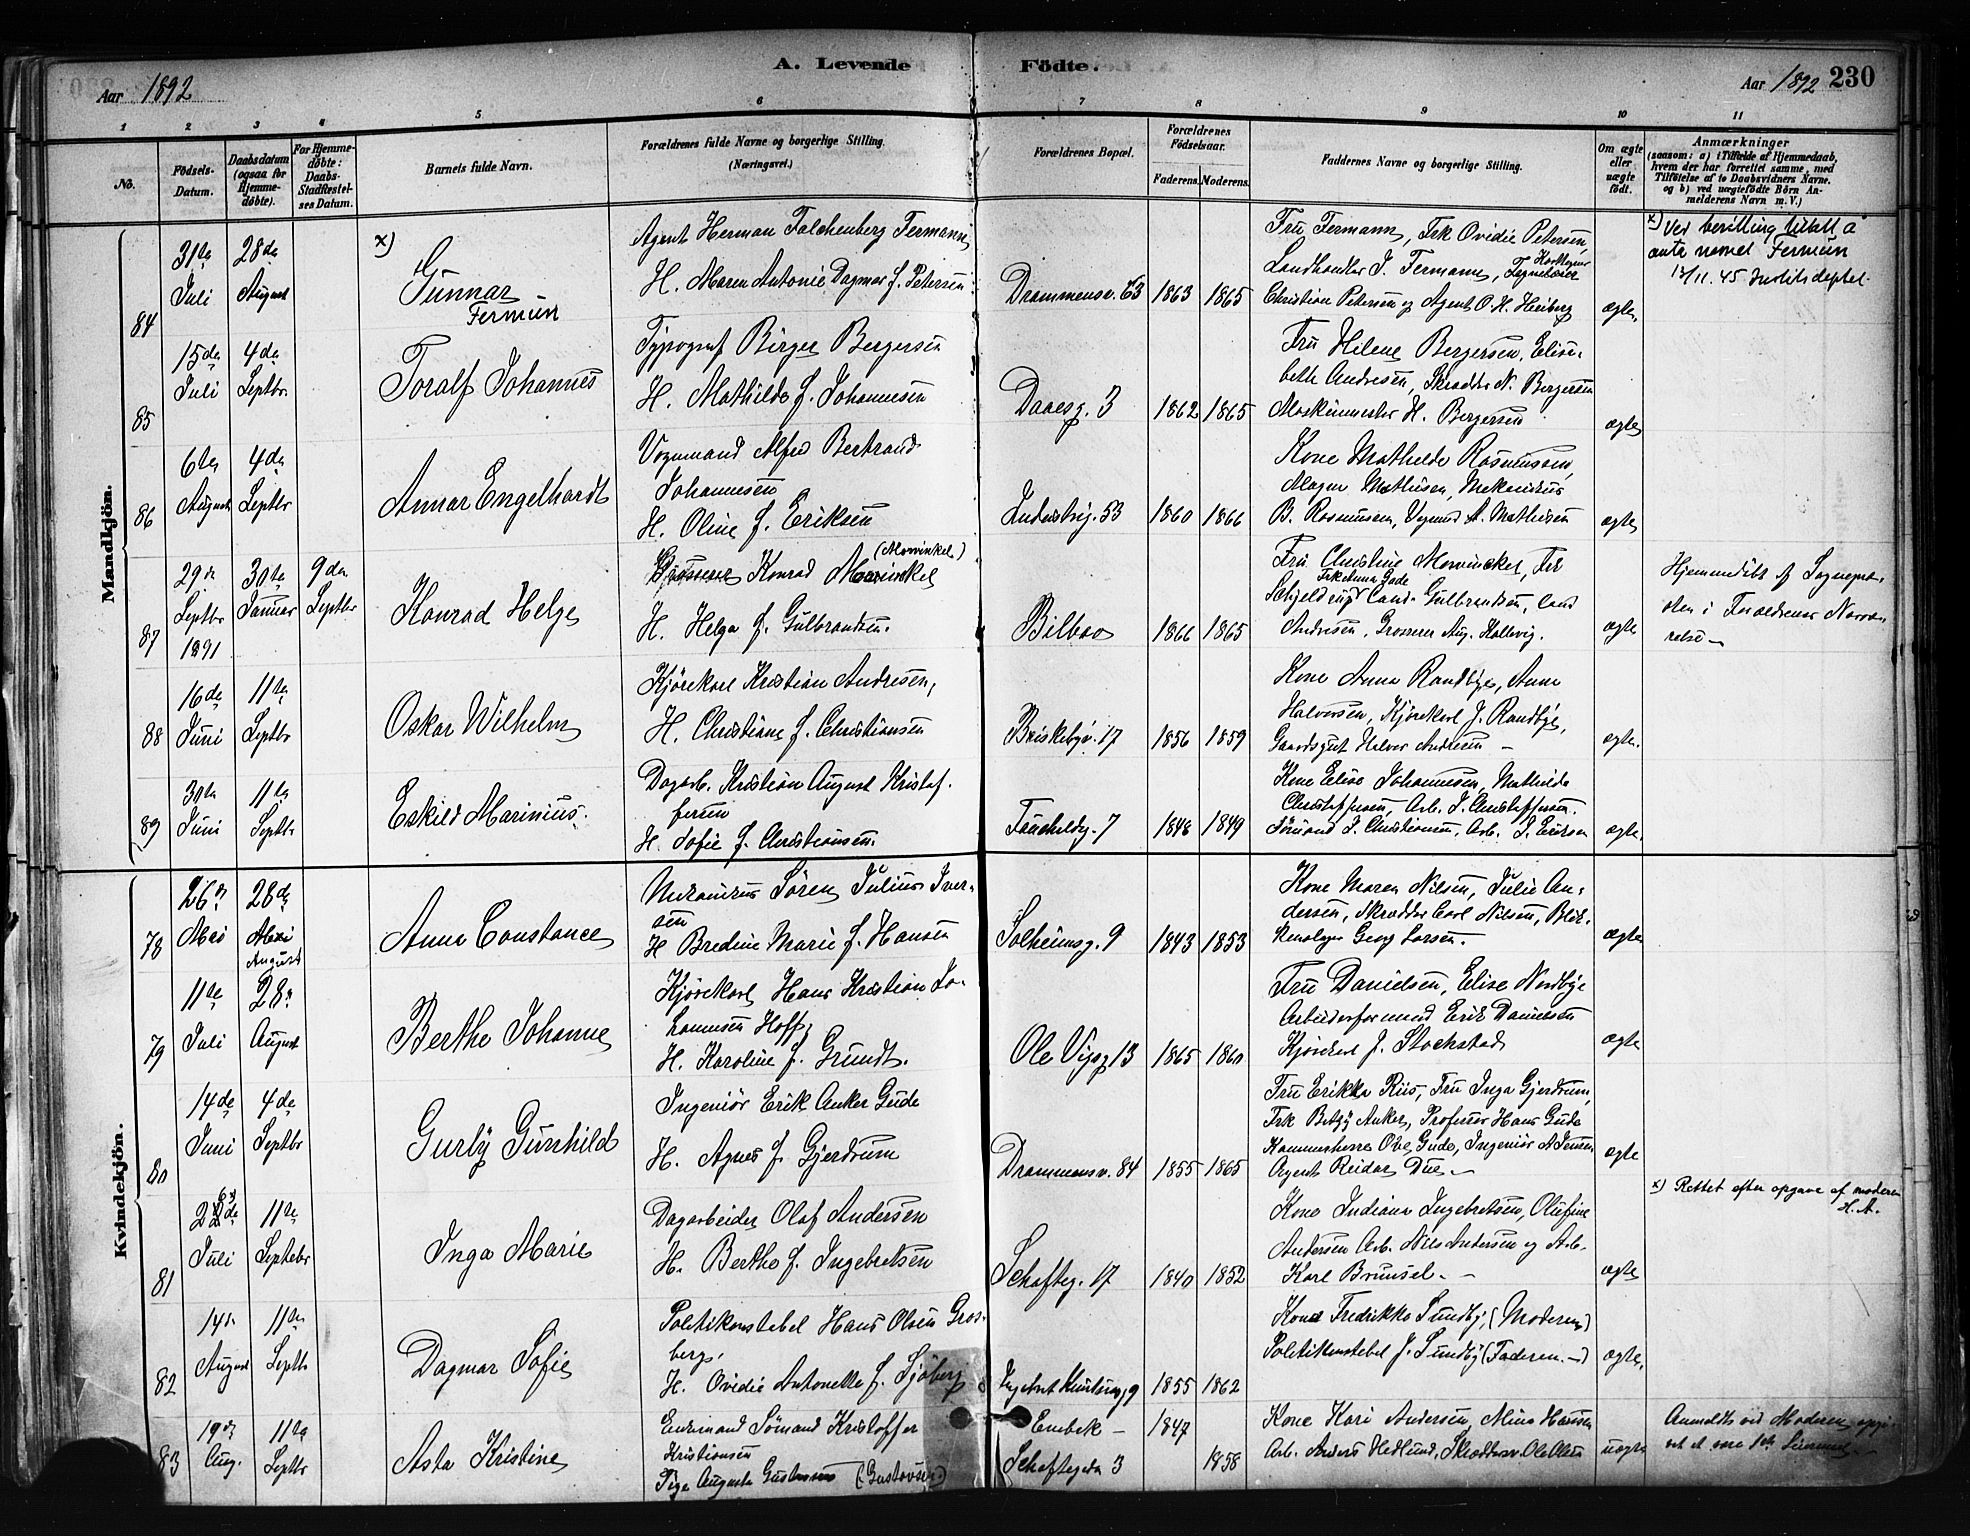 A. Levende Födte.
Aar 1892
Aar 1892 230
1 2 3 4 5 6 7 8 9 10 11
No.
Födsels-Datum.
Daabsdatum (ogsaa for Hjemme-döbte).
For Hjemme-döbte: Daabs-Stadfæstel-ses Datum.
Barnets fulde Navn.
Forældrenes fulde Navne og borgerlige Stilling.
(Næringsvei.)
Forældrenes Bopæl.
Forældrenes Födselsaar.
Faderens. Moderens.
Faddernes Navne og borgerlige Stilling.
Om ægte eller uægte födt.
Anmærkninger
(saasom: a) i Tilfælde af Hjemmedaab,
hvem der har forrettet samme, med
Tilföielse af to Daabsvidners Navne,
og b) ved uægtefödte Börn An-
melderens Navn m. V.)
Mandkjön.
84
31te Juli
28de August
x) Gunnar
Fermün
Agent Herman Falchenberg Fermann
H. Maren Antonie Dagmar f. Petersen
Drammensv. 63
1863 1865
Fru Fermann, Frk Ovidie Petersen,
Landhandler J. Fermann,
Christian Petersen og Agent O. H. Heiberg
ægte.
x) Ved bevilling tillatt å
anta navnet Fermün
Justitsdeptet
85
15de Juli
4de Septbr.
Toralf Johannes
Typograf Birger Bergersen
H. Mathilde f. Johannesen
Daaesg. 3
1862 1865
Fru Helene Bergersen, Elise-
beth Andresen, Skrædder N. Bergersen
Maskinmester H. Bergersen
ægte
86
6te August
4de Septbr
Annar Engelhardt
Vognmand Alfred Bertrand
Johannesen
H. Oline f. Eriksen
53
1860 1866
Kone Mathilde Rasmussen,
Magna Mathisen, Mekanikus
B. Rasmussen, Vognmd A. Mathisen
ægte
87
29de Septbr 1891
30te Januar
9de Septbr
Konrad Helge
Grosserer Konrad Mowinkel (Mowinkel)
H. Helga f. Gulbrandsen.
Bilbao
1866 1865
Fru Christine Mowinckel, Frk
Schjelderup, Frk Anna Gade, Cand. Gulbrandsen, Cand
Andresen, Grosserer Aug. Kallevig.
ægte
Hjemmedöbt af Sognepræ-
sten i Forældrenes Nærvæ-
relse –
88
16de Juni
11te Septbr
Oskar Wilhelm
Kjörekarl Kristian Andresen,
H. Christiane f. Christiansen
Briskebyv. 17
1856 1859
Kone Anna Randbye, Anna
Halvorsen, Kjörekarl J. Randbye,
Gaardsgut Halvor Andresen –
ægte.
89
30te Juni
11te Septbr
Eskild Marinius.
Dagarb. Kristian August Kristof-
fersen
H. Sofie f. Christiansen.
7
1848 1849
Kone Elise Johannesen, Mathilde
Christoffersen, Arb. J. Christoffersen.
Sömand J. Christiansen, Arb. J. Eriksen
ægte.
Kvindekjön.
78
26de Mai
28de Mai
August
Anna Constance
Mekanikus Sören Julius Iver-
sen
H Bredine Marie f. Hansen
Solheimsg. 9
1843 1853
Kone Maren Nilsen, Julie An-
dersen, Skrædder Carl Nilsen, Blik-
kenslager Georg Larsen.
ægte
79
11te Juli
28de August
Berthe Johanne
Kjörekarl Hans Kristian Jo-
hannesen Hoff,
H. Karoline f. Grundt.
Ole Vigsg 13
1865 1860
Fru Danielsen, Elise Nordbye
Arbeiderformand Erik Danielsen
Kjörekarl J. Stockstad
ægte
80
14de Juni
4de Septbr
Gurly Gunhild
Ingeniör Erik Anker Gude
H. Agnes f. Gjerdrum
Drammensv. 84
1855 1865
Fru Erikka Riis, Fru Inga Gjerdrum,
Frk Betzy Anker, Professor Hans Gude
Kammerherre Ove Gude, Ingeniör A Jensen
Agent Reidar Due –
ægte
81
22de Juli
11te Septebr
Inga Marie
Dagarbeider Olaf Andersen
H. Berthe f. Ingebretsen
Schafteg. 17
1840 1852
Kone Indiana Ingebretsen, Olufine
Andersen Arb. Nils Andersen og Arb.
Karl Brunsel. –
ægte
x) Rettet efter opgave af moderen
H. A.
82
14de August
11te Septbr
Dagmar Sofie
Politikonstabel Hans Olsen Gros-
berg.
H. Ovidie Antonette f. Sjöberg
9
1855 1862
Kone Fredrikke Sundby, (Moderen)
Politikonstabel J. Sundby (Faderen. –)
ægte.
83
19de Aug.
11te Septbr
Asta Kristine
Sömand Kristoffer
Kristiansen
Pige Augusta Gustavsen (Gustavsen)
Enebak –
Schaftegaden 3
1847
1858
Kone Kari Andersen, Mina Hansen
Arb. Anders Hedlund, Skrædder Ole Olsen
uægte
Anmeldt ved Moderen, opgi-